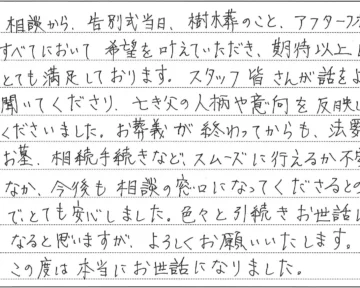 相談から、告別式当日、樹木葬のこと、アフターフォ
すべてにおいて希望を叶えていただき、期待以上
とても満足しております。スタッフ皆さんが話をよ
聞いてくださり、亡き父の人柄や意向を反映
くださいました。お葬儀が終わってからも、法要
お墓、相続手続きなど、スムーズに行えるか不安
なか、今後も相談の窓口になってくださると
で、とても安心しました。色々と引続きお世話に
なると思いますが、よろしくお願いいたします。
この度は本当にお世話になりました。